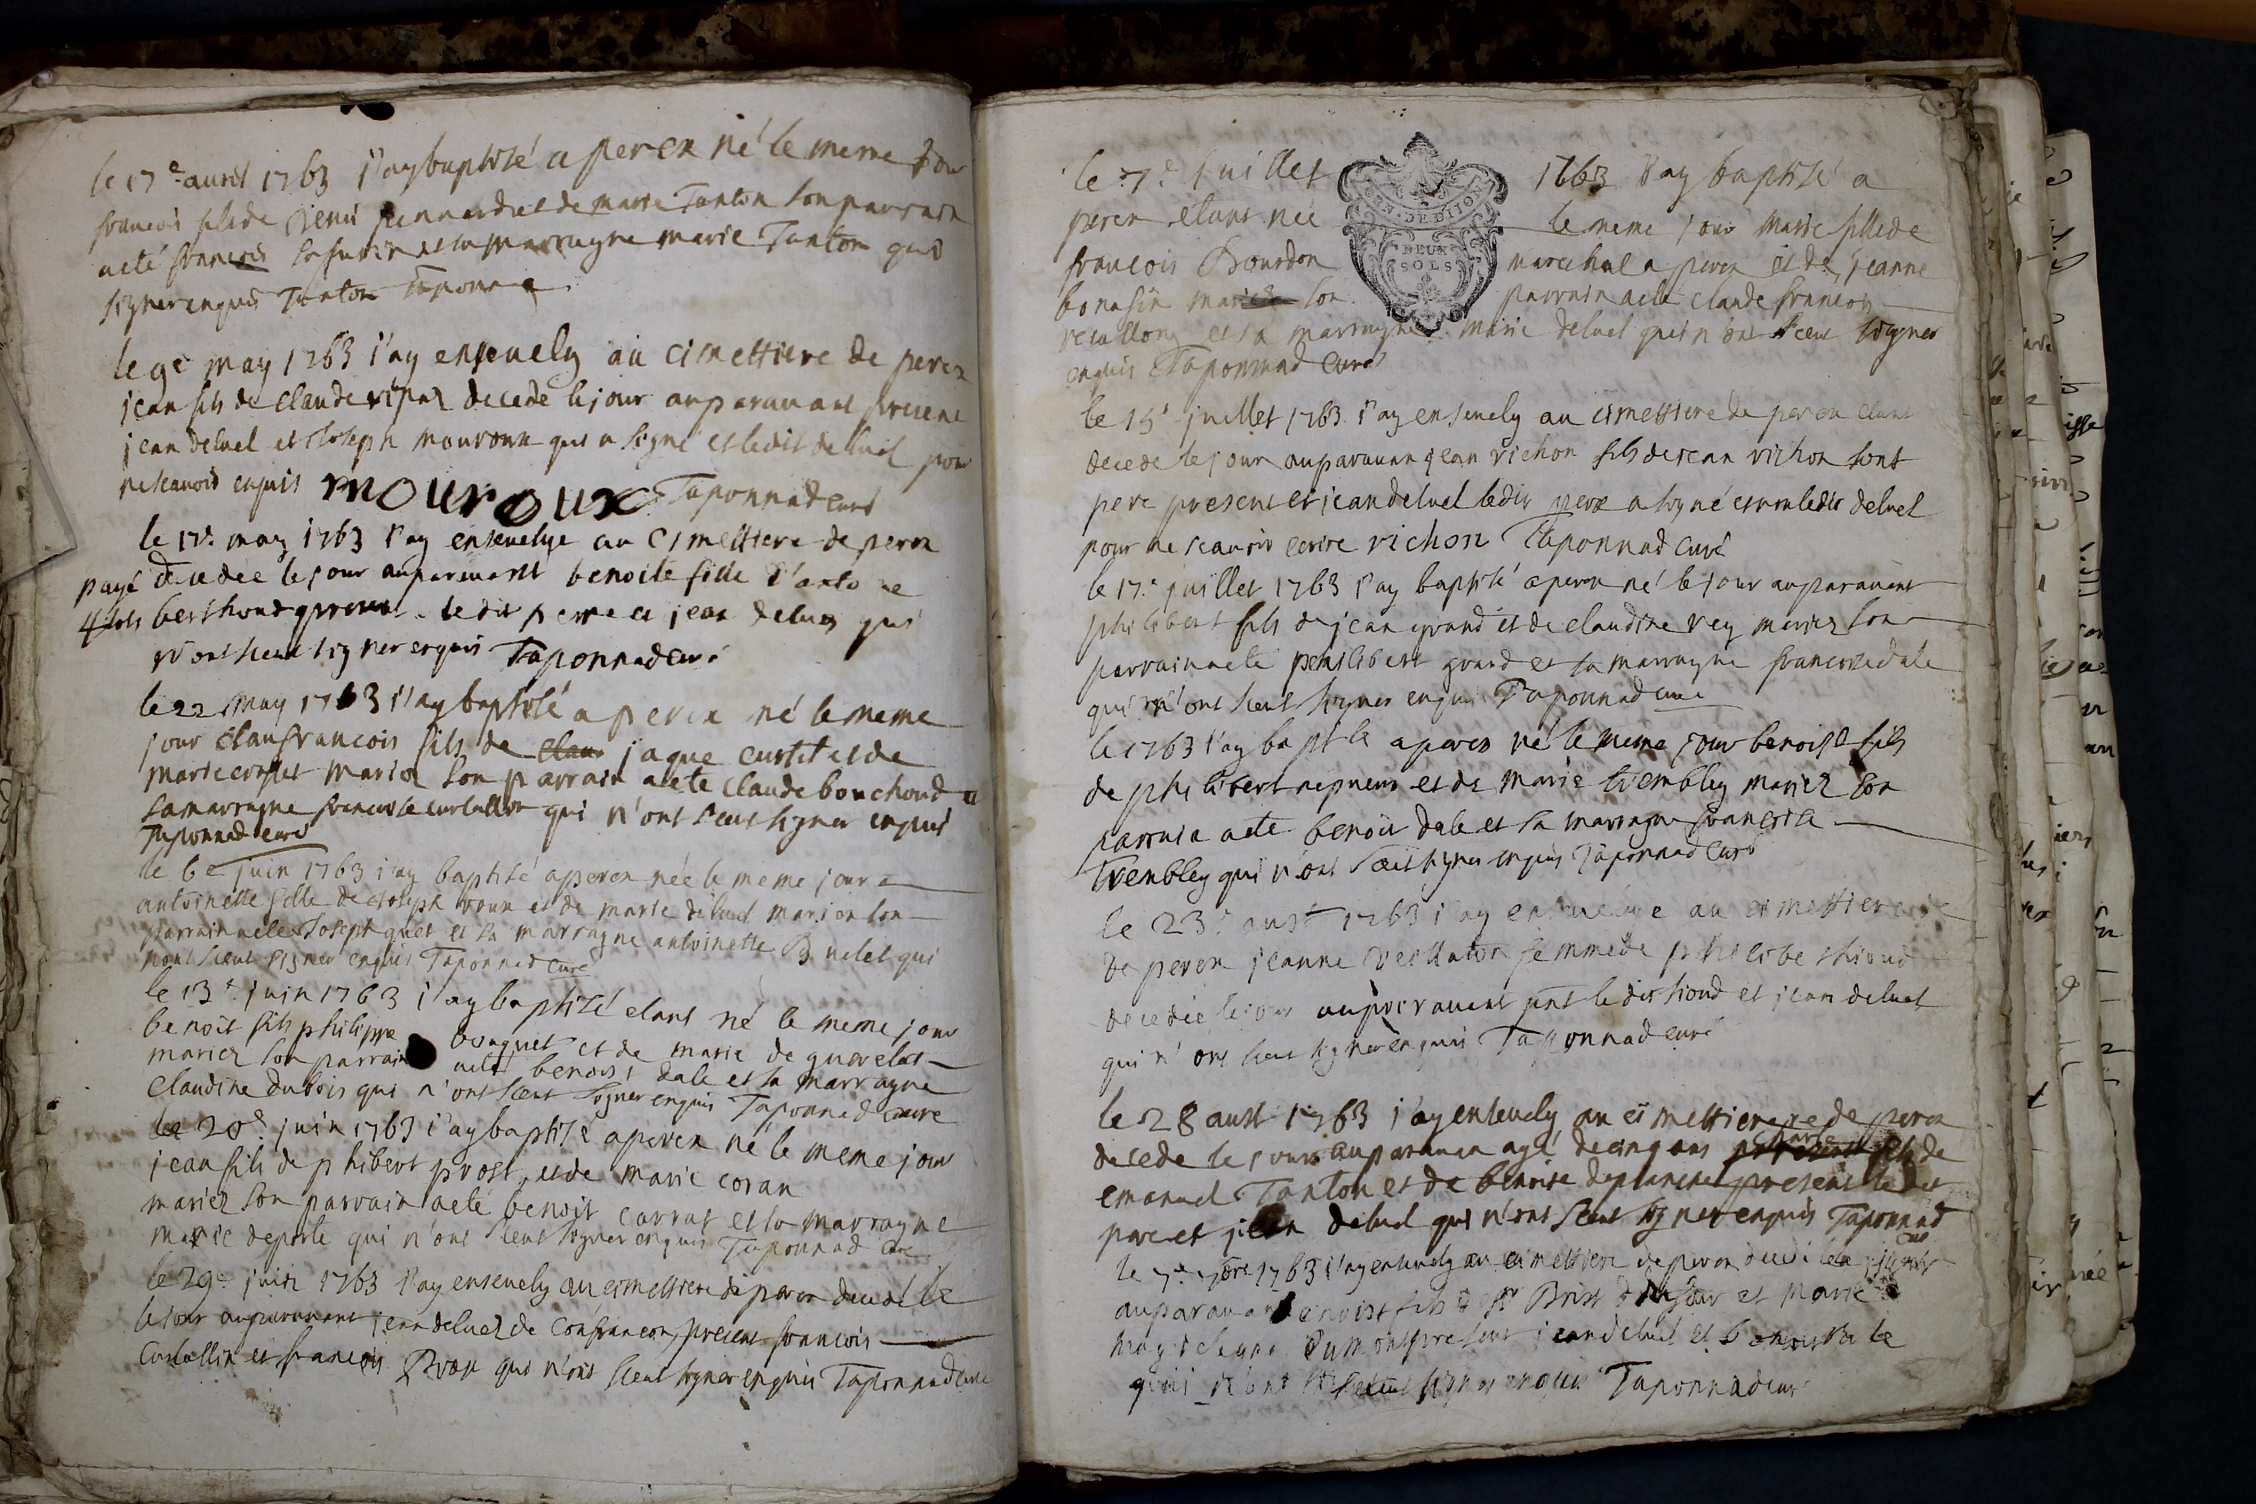 le 17e auril 1763 j'ay baptisé a perex né le meme jour
francois fils de Denis et de marie Tanton son parrain
aeté francois et sa marragne marie Tanton qui
signer enquis Tanton Taponna
le 9e may 1763 j'ay ensevely au cimettiere de perex
jean fils de claude decede le jour auparauant present
jean deluel et Joseph mouroux qui a signé et ledit deluel pour
ne scauoir enquis mouroux Taponnad curé
le 17e may 1763 j'ay ensevelye au cimettiere de perex
payé decedee le jour auparauant benoite fille d'antoine
4 sols berthoud present ledit pere et jean deluel qui
n'ont sceut signer enquis Taponnad curé
le 22 may 1763 j'ay baptisé a perex né le meme
jour claufrancois fils de clau jaque curtil et de
marie mariez son parrain aeté claude bouchoud
sa marragne francoise curtallin qui n'ont sceut signer enquis
Taponnad curé
le 6e juin 1763 j'ay baptisé a perex née le meme jour
antoinette fille de Joseph roux et de marie deluel mariez son
parrain aeté Joseph guet et sa marragne antoinette Buelet qui
nont sceut signer enquis Taponnad curé
le 13e juin 1763 j'ay baptisé etant né le meme jour
benoit fils philippe bouquet et de marie de
mariez son parrain aeté benoist dale et sa marragne
claudine dubois qui n'ont sceut signer enquis Taponnad curé
le 20e juin 1763 j'ay baptisé a perex né le meme jour
jean fils de phibert prost et de marie coran
mariez son parrain aeté benoit carrat et sa marragne
marie deporte qui n'ont sceut signer enquis Taponnad curé
le 29e juin 1763 j'ay ensevely au cimettiere de perex decede le
le jour auparauant jean deluel de confrancon present francois
curtallin et francois Buon qui n'ont sceut signer enquis Taponnad curé
GEN. DE DIJON
DEUX
SOLS
le 7e Juillet 1763 j'ay baptisé a
perex etant née le meme jour marie fille de
francois Bourdon marechal a perex et de jeanne
bonasin mariez son parrain aeté claude francois
reuallon et sa marragne marie deluel qui n'ont sceut signer
enquis Taponnad curé
le 15e juillet 1763 j'ay ensevely au cimettiere de perex etant
decede le jour auparauan jean richon fils de jean richon sont
pere present et jean deluel ledit pere a signé et non ledit deluel
pour ne scauoir ecrire richon Taponnad curé
le 17e juillet 1763 j'ay baptisé a perex né le jour auparauant
philibert fils de jean grand et de claudine rey mariez son
parrain aeté philibert grand et sa marragne francoise dale
qui n'ont sceut signer enquis Taponnad curé
le 1763 j'ay baptisé a perex né le meme jour benoist fils
de philibert et de marie trembley mariez son
parrain aeté benoit dale et sa marragne francoise
trembley qui n'ont sceut signer enquis Taponnad curé
le 23e aust 1763 j'ay au cimettiere
de perex jeanne femme de
decedée le jour auparauant pnt ledit et jean deluel
qui n'ont sceut signer enquis Taponnad curé
le 28 aust 1763 j'ay ensevely au cimettiere de perex
decede le jour auparauan agé de cinq ans fils de
emanuel Tanton et de benoite present ledit
pere et jean deluel qui n'ont sceut signer enquis Taponnad
curé
le 7e 7bre 1763 j'ay ensevely au cimettiere de perex
auparauant benoist fils et marie
present jean deluel et
qui n'ont sceut signer enquis Taponnad curé